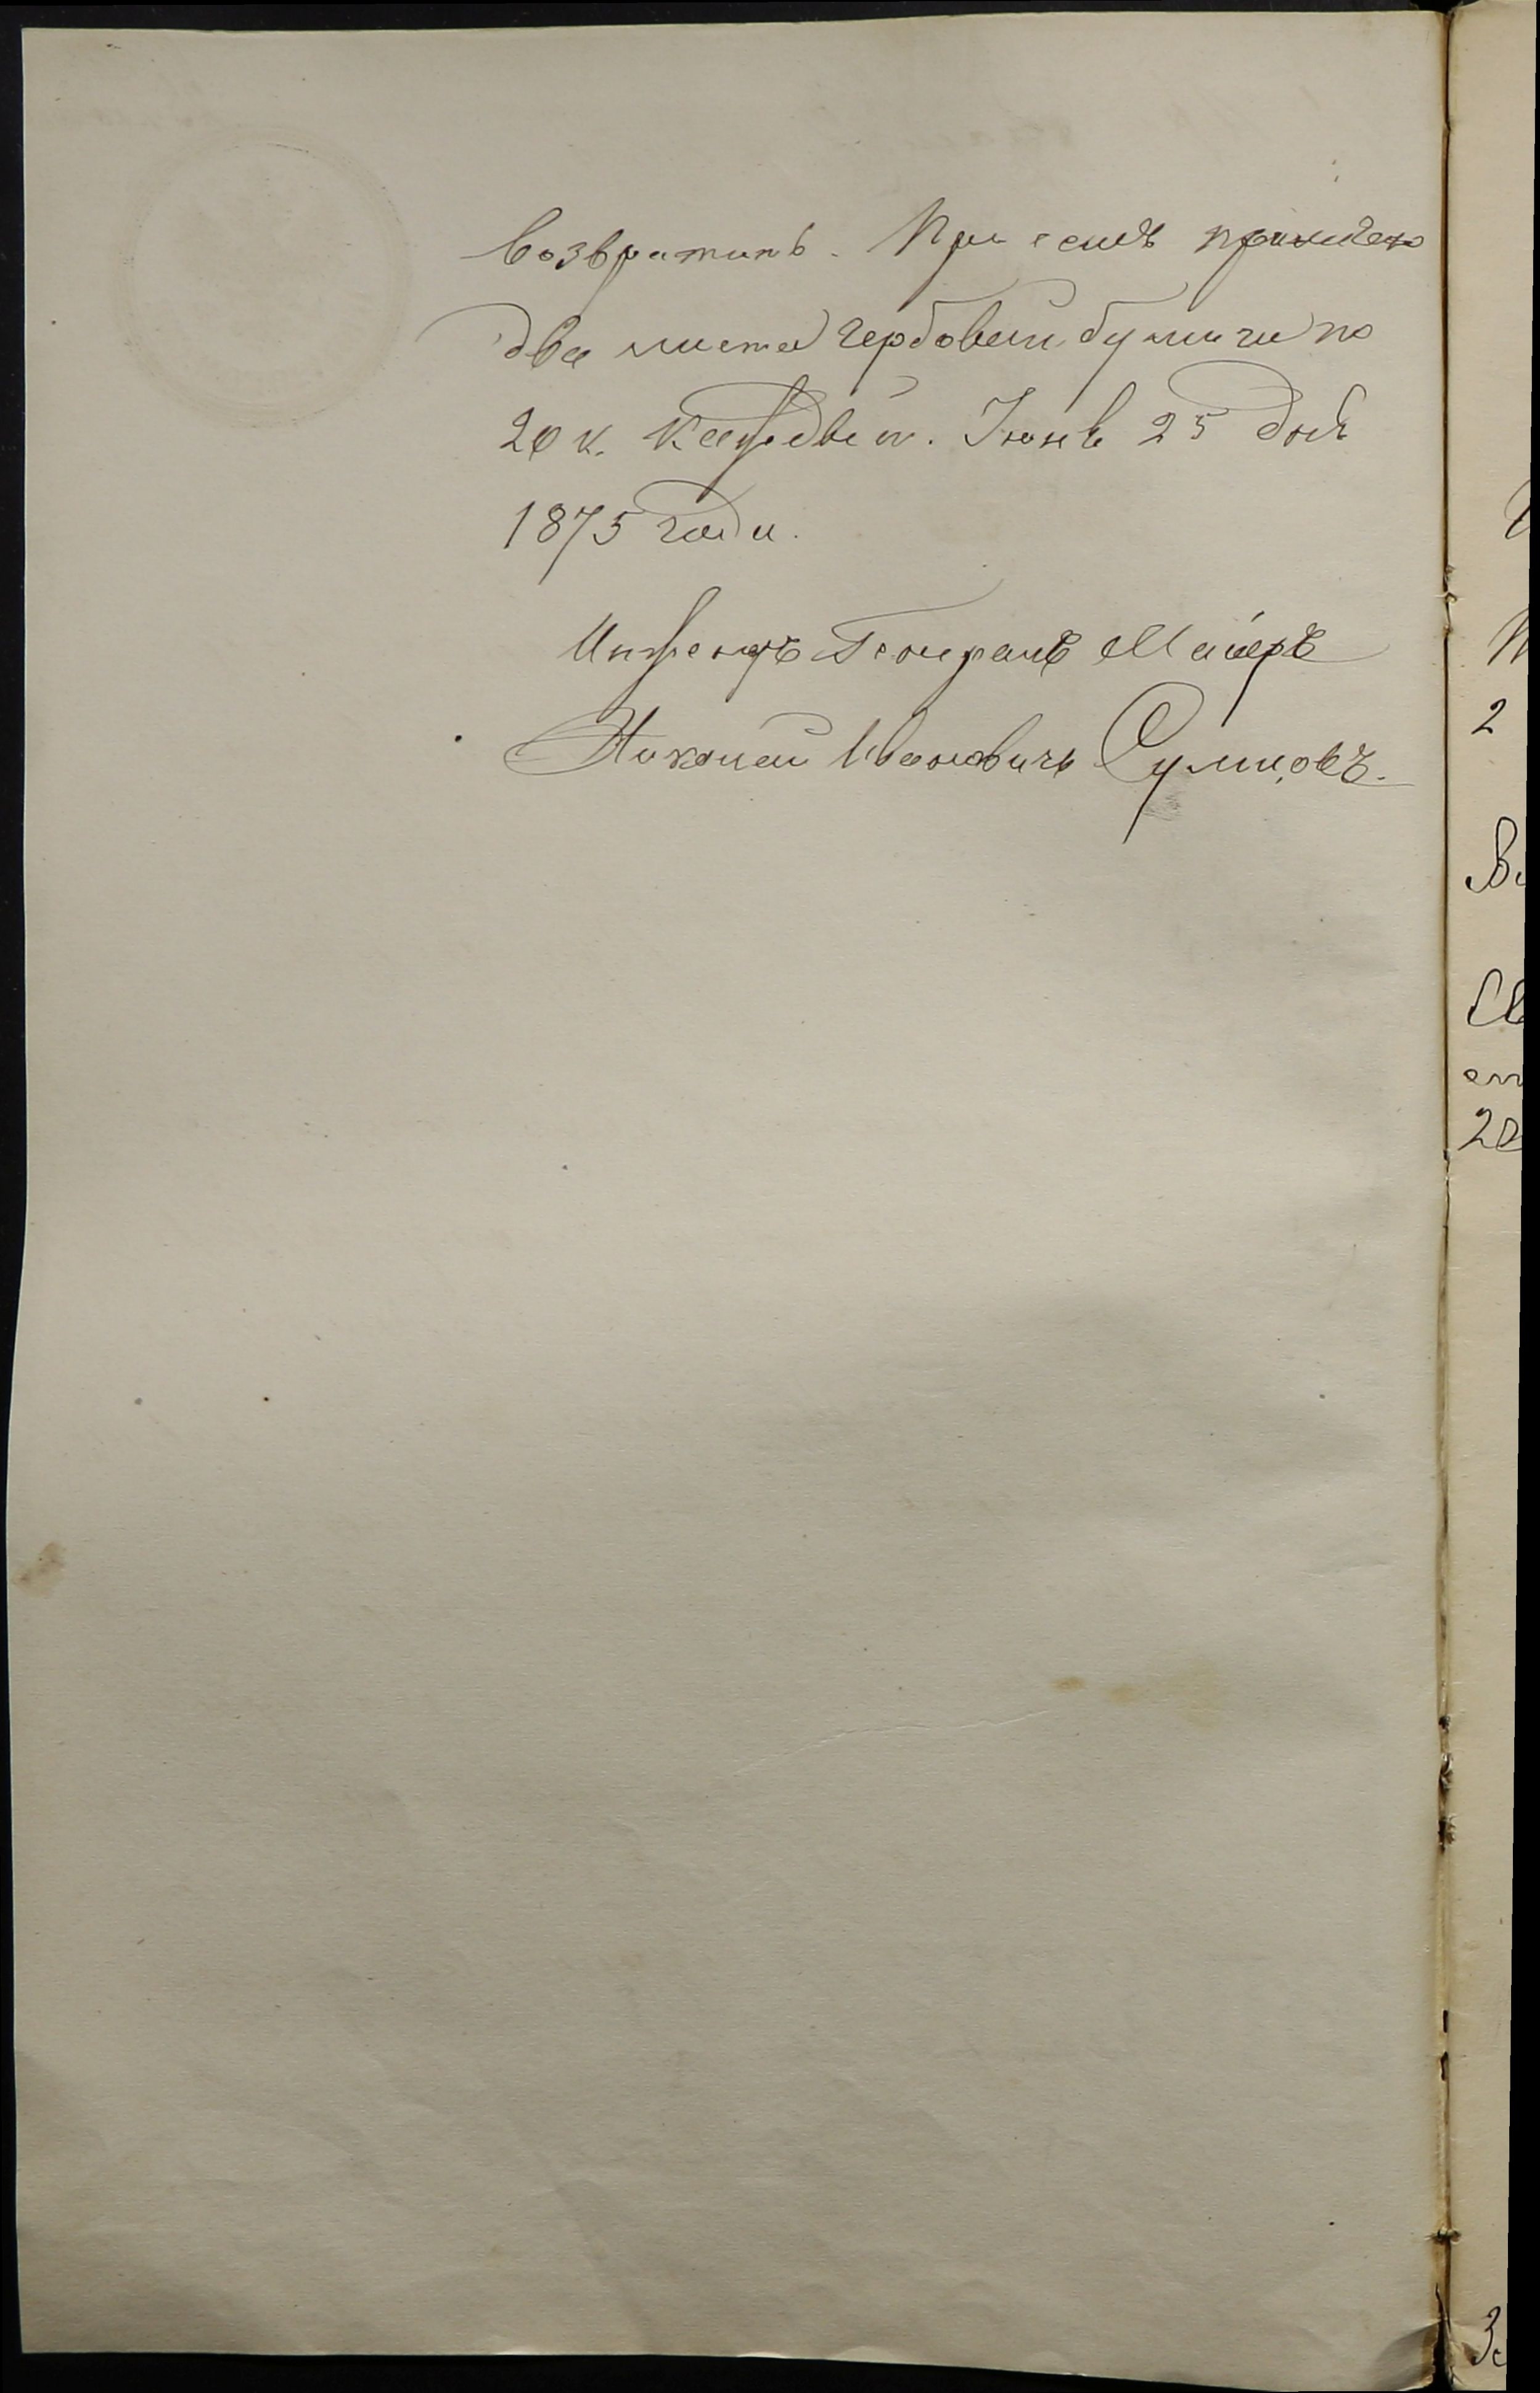 возвратить. При семъ прилагаю
два листа гербовой бумаги по
20 к. каждый. Іюнь 25 дня
1875 года.
Инженеръ Генералъ Маіоръ
Николай Ивановичъ Сумцовъ.
2